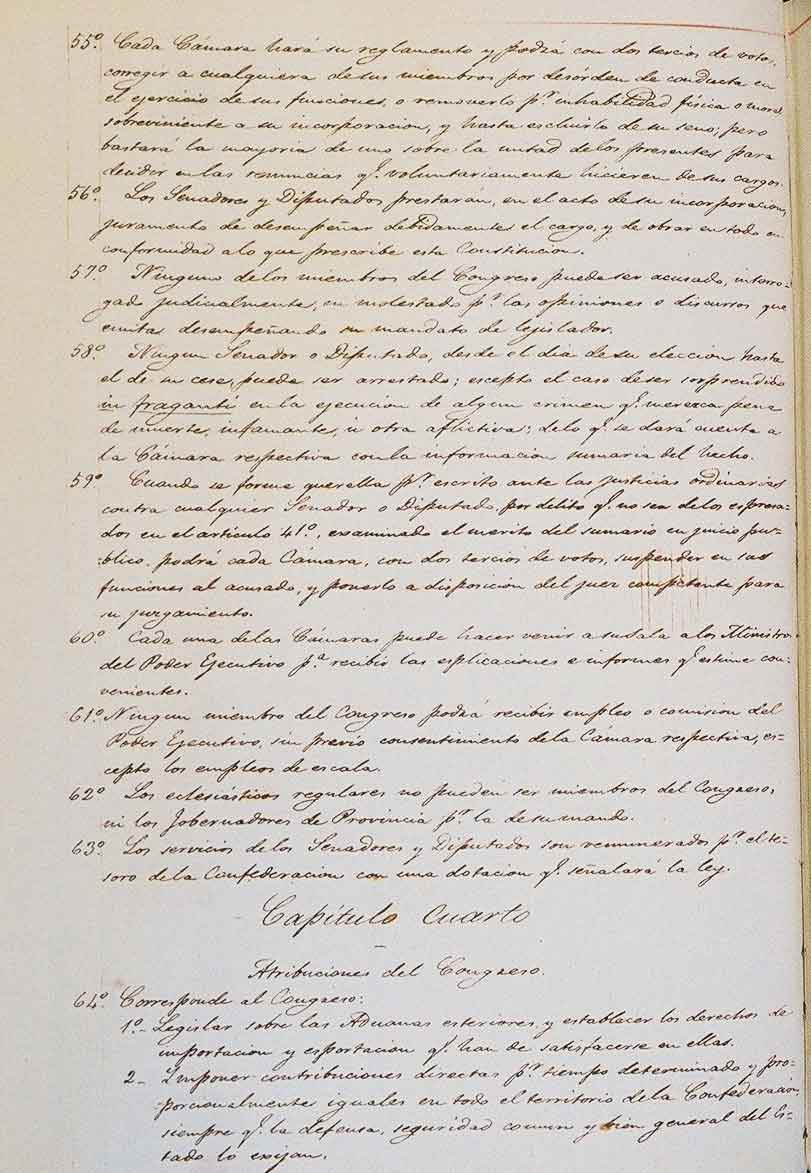 55º. Cada Cámara hará su reglamento y podrá con dos tercios de votos,
corregir a cualquiera de sus miembros por desórden de conducta en
el ejercicio de sus funciones, o removerlo pr. inhabilidad física o moral
sobreviniente a su incorporacion, y hasta escluirle de su seno; pero
bastará la mayoria de uno sobre la mitad de los presentes para
decidir en las renuncias q. voluntariamente hicieren de sus cargos.
56º. Los Senadores y Diputados prestarán, en el acto de su incorporacion,
juramento de desempeñar debidamente el cargo, y de obrar en todo en
conformidad a lo que prescribe esta Constitucion.
57º. Ninguno de los miembros del Congreso puede ser acusado, interro-
gado judicialmente, ni molestado pr. las opiniones o discursos que
emita desempeñando su mandato de legislador.
58º. Ningun Senador o Diputado, desde el dia de su eleccion hasta
el de su cese, puede ser arrestado; escepto el caso de ser sorprendido
in fraganti en la ejecucion de algun crimen q. merezca pena
de muerte, infamante, u otra aflictiva; de lo q. se dará cuenta a
la Cámara respectiva con la informacion sumaria del hecho.
59º. Cuando se forme querella pr. escrito ante las justicias ordinarias
contra cualquier Senador o Diputado, por delito q. no sea de los espresa-
dos en el artículo 41º, examinado el merito del sumario en juicio pú-
blico, podrá cada Cámara, con dos tercios de votos, suspender en sus
funciones al acusado, y ponerlo a disposicion del juez competente para
su juzgamiento.
60º. Cada una de las Cámaras puede hacer venir a su sala a los Ministros
del Poder Ejecutivo pa. recibir las esplicaciones e informes q. estime con-
venientes.
61º. Ningun miembro del Congreso podrá recibir empleo o comision del
Poder Ejecutivo, sin previo consentimiento de la Cámara respectiva, es-
cepto los empleos de escala.
62º. Los eclesiásticos regulares no pueden ser miembros del Congreso,
ni los Gobernadores de Provincia pr. la de su mando.
63º. Los servicios de los Senadores y Diputados son remunerados pr. el te-
soro de la Confederacion con una dotacion q. señalará la ley.
Capítulo Cuarto
Atribuciones del Congreso.
64º. Corresponde al Congreso:
1º.- Legislar sobre las Aduanas esteriores, y establecer los derechos de
importacion y esportacion q. han de satisfacerse en ellas.
2- Imponer contribuciones directas pr. tiempo determinado y pro-
porcionalmente iguales en todo el territorio de la Confederacion,
siempre q. la defensa, seguridad comun y bien general del Es-
tado lo exijan.